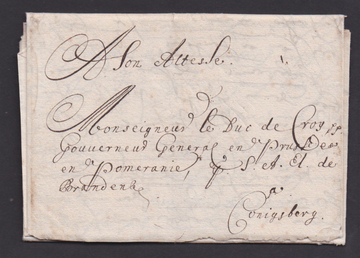 A Son Altesse
Monseigneur le Duc de Croy
Gouverneur General en Prusse
en Pomeranie, S. A. El. de
Brandenb
a
Conigsberg.